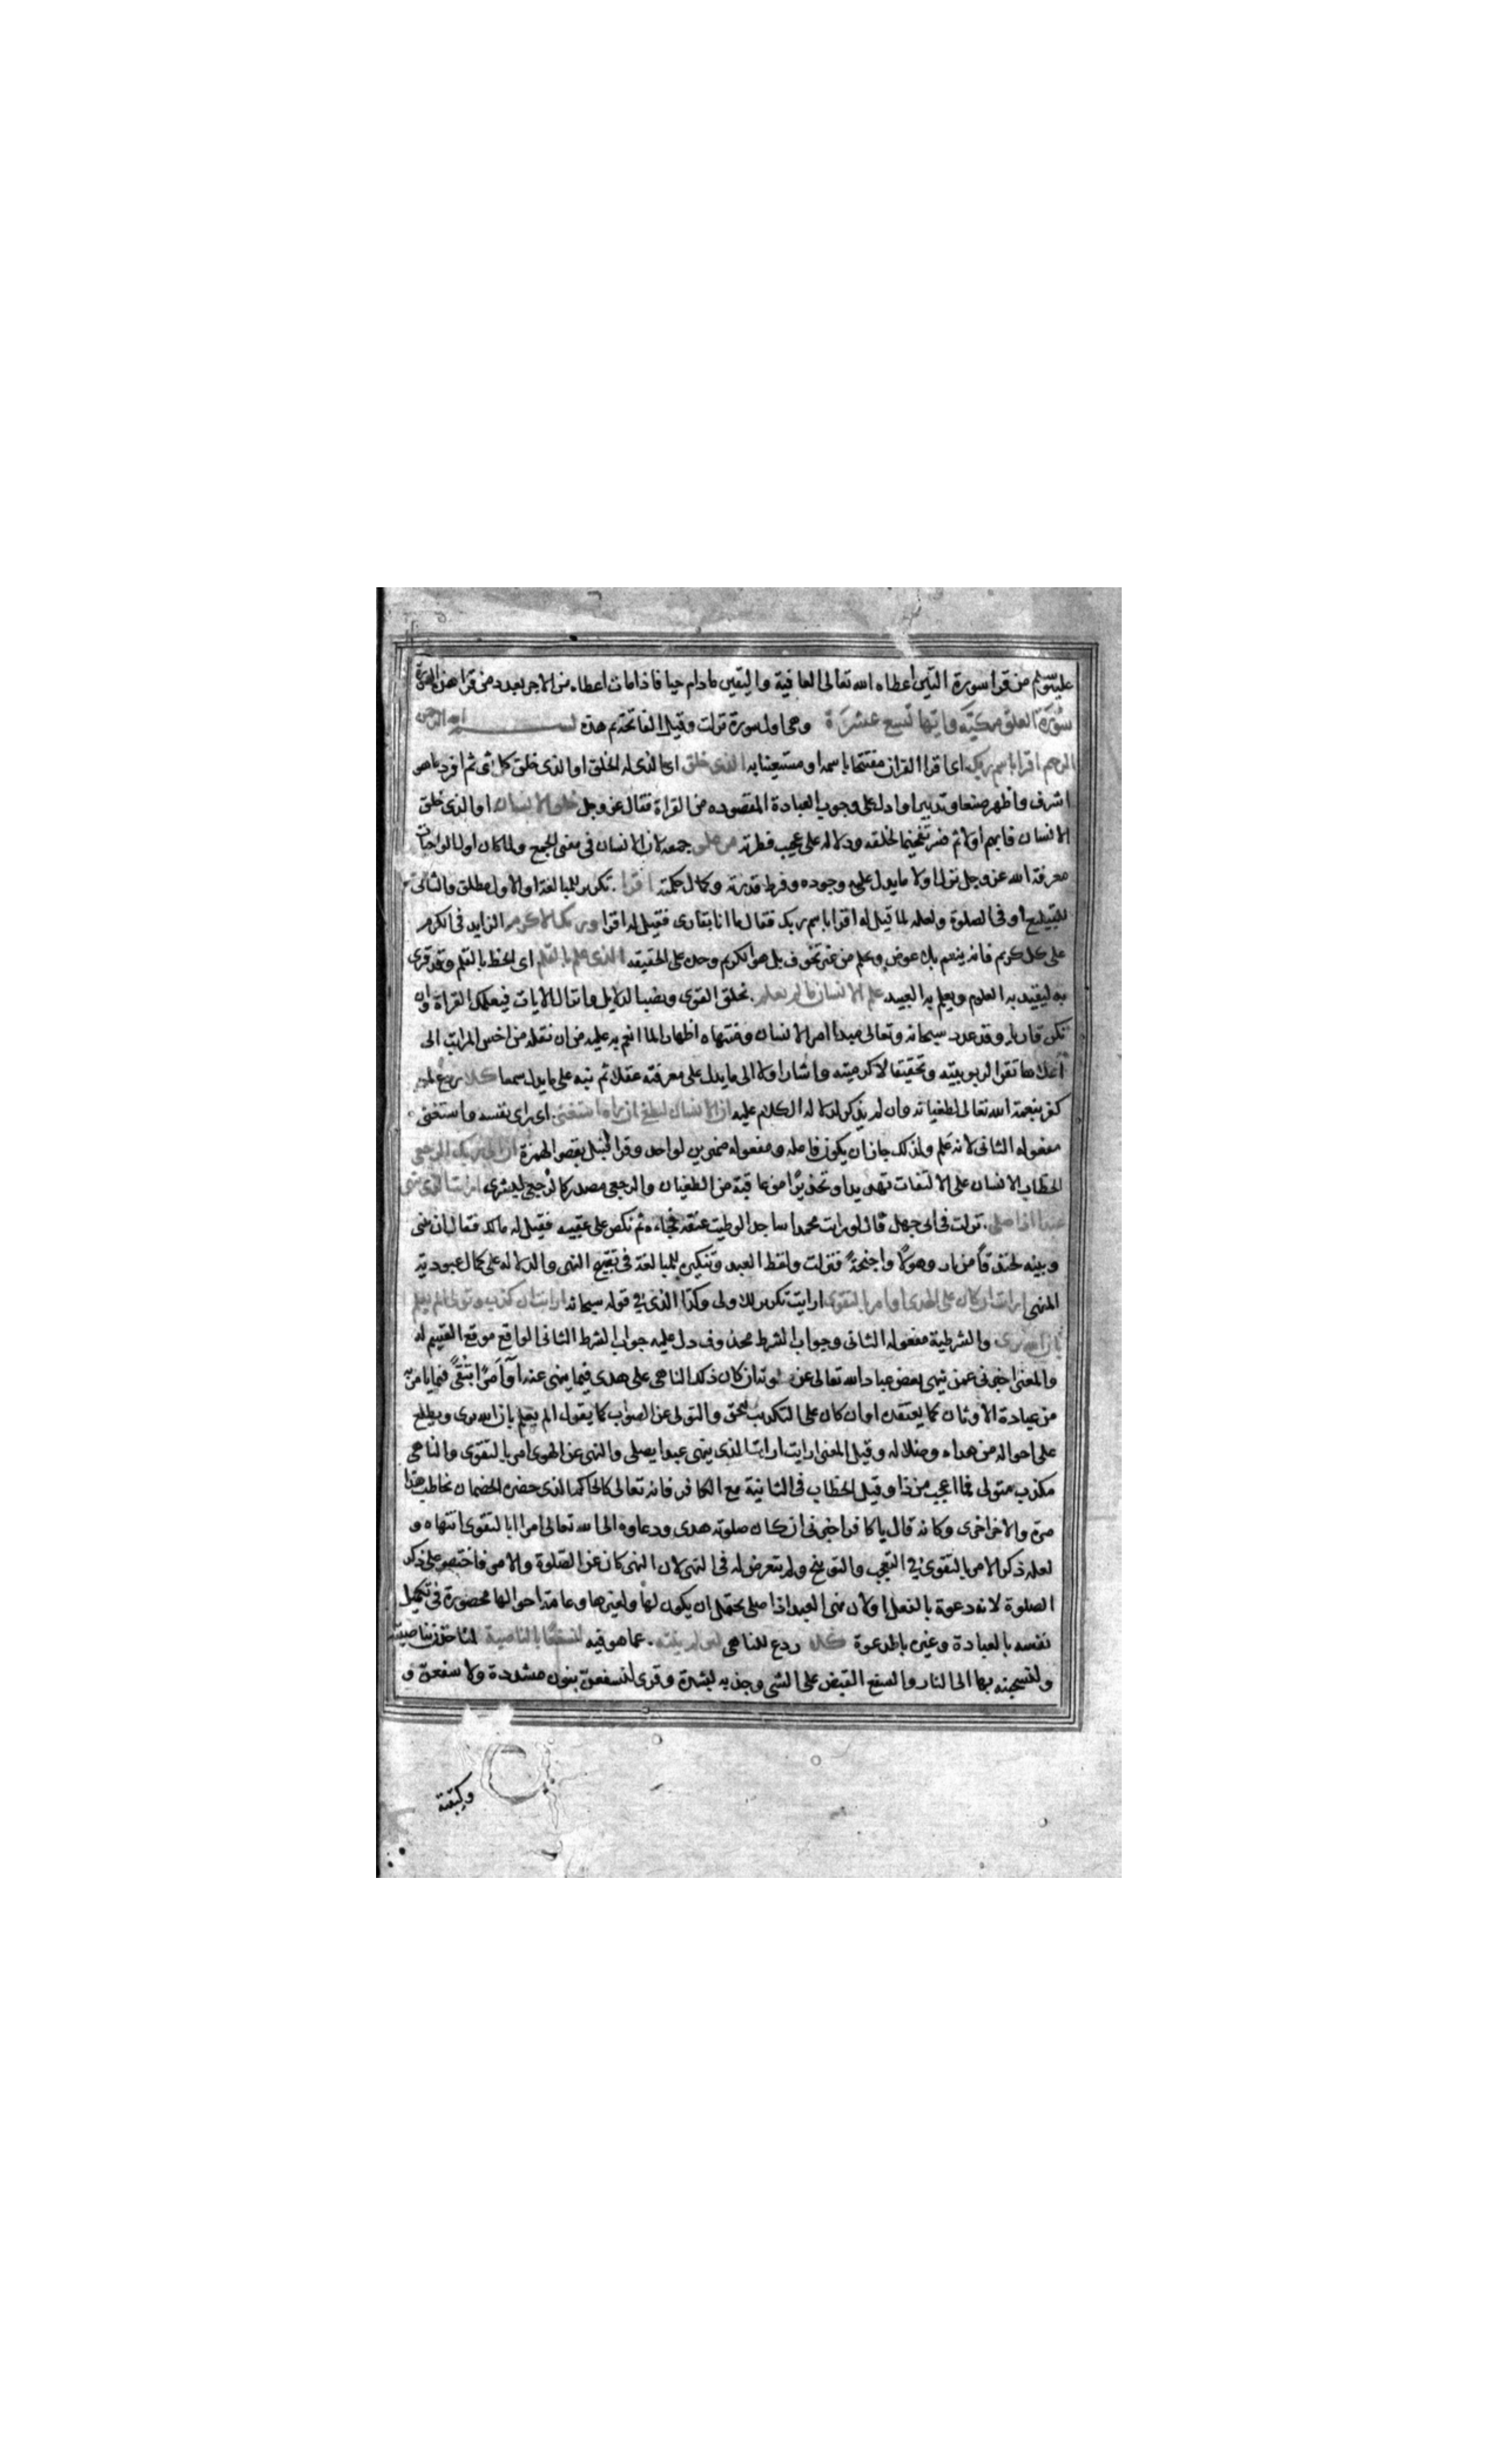 عليه وسلم من قرا سورة التين اعطاه الله تعالى العافية واليقين مادام حيا فاذا مات اعطاه من الاجر بعدد من قرا هذه السورة
سورة العلق مكية وايها تسع عشرة وهى اول سورة نزلت وقيل الفاتحة ثم هذه بسم الله الرحمن
الرحيم اقرا باسم ربك اى اقرا القران مفتتحا باسمه او مستعينا به الذى خلق اى الذى له الخلق او الذى خلق كل شى ثم افرد ما هو
اشرف واظهر صنعا وتدبيرا وادل على وجوب العبادة المقصوده من القراة فقال عز وجل خلق الانسان او الذى خلق
الانسان فابهم اولا ثم فسر تفخيما لخلقه ودلاله على عجيب فطرته من علق جمعه لان الانسان فى معنى الجمع ولما كان اول الواجبات
معرفة الله عز وجل نزل اولا ما يدل على وجوده وفرط قدرته وكمال حكمته اقرا تكرير للمبالغة او الاول مطلق والثانى
للتبليغ او فى الصلوة ولعله لما قيل له اقرا باسم ربك فقال ما انا بقارى فقيل له اقرا وربك الاكرم الزايد فى الكرم
على كل كريم فانه ينعم بلا عوض ويحلم من غير تخوف بل هو الكريم وحده على الحقيقه الذى علم بالقلم اى الخط بالقلم وقد قرى
به ليقيد به العلوم ويعلم به البعيد علم الانسان ما لم يعلم بخلق القوى ونصب الدلايل وانزال الايات فيعلمك القراة وان
تكن قاريا وقد عدد سبحانه وتعالى مبدا امر الانسان ومنتهاه اظهارا لما انعم به عليه من ان نقله من اخس المراتب الى
اعلاها تقرا لربوبيته وتحقيقا لاكرميته واشار اولا الى ما يدل على معرفته عقلا ثم نبه على ما يدل سمعا كلا ردع لمن
كفر بنعمة الله تعالى لطغيانه وان لم يذكر لدلالة الكلام عليه ان الانسان ليطغى ان راه استغنى اى راى نفسه واستغنى
مفعوله الثانى لانه علم ولذلك جاز ان يكون فاعله ومفعوله ضميرين لواحد وقرا قنبل بقصر الهمزة ان الى ربك الرجعى
الخطاب للانسان على الالتفات تهديدا وتحذيرا من عاقبة من الطغيان والرجعى مصدر كالرجعى لبشرى ارايت الذى ينهى
عبدا اذا صلى نزلت فى ابى جهل قال لو رايت محمدا ساجدا لوطيت عنقه فجاءه ثم نكص على عقبيه فقيل له مالك فقال ان بينى
وبينه لخندقا من نار وهولا واجنحة فنزلت ولفظ العبد وتنكيره للمبالغة فى تقبيح النهى والدلاله على كمال عبوديته
المنهى ارايت ان كان على الهدى او امر بالتقوى ارايت تكرير للاولى وكذا الذى فى قوله سبحانه ارايت ان كذب وتولى الم يعلم
بان الله يرى والشرطية مفعوله الثانى وجواب الشرط محذوف دل عليه جواب الشرط الثانى الواقع موقع القسيم له
والمعنى اخبرنى عمن ينهى بعض عباد الله تعالى عن صلوته ان كان ذلك الناهى على هدى فيما ينهى عنه او امرا بتقى فيما يامر به
من عبادة الاوثان كما يعتقده او ان كان على التكذيب للحق والتولى عن الصواب كما يقول الم يعلم بان الله يرى ويطلع
على احواله من هداه وضلاله وقيل المعنى ارايت ارايت الذى ينهى عبدا يصلى والنهى عن الهوى امر بالتقوى والناهى
مكذب متولى فما اعجب من ذا وقيل الخطاب فى الثانية مع الكافر فانه تعالى كالحاكم الذى حضره الخصمان يخاطب هذا
مرة والاخر اخرى وكانه قال يا كافر اخبرنى ان كان صلوته هدى ودعاوه الى الله تعالى امرا بالتقوى اتنهاه و
لعله ذكر الامر بالتقوى فى التعجب والتوبيخ ولم يتعرض له فى النهى لان النهى كان عن الصلوة والامر فاختصر على ذكر
الصلوة لانه دعوة بالفعل او لان نهى العبد اذا صلى يحتمل ان يكون لها ولغيرها وعامة احوالها محصورة فى تكميل
نفسه بالعبادة وغيره بالدعوة كلا ردع للناهى لئن لم ينته عما هو فيه لنسفعا بالناصية لناخذن بناصيته
ولنسحبنه بها الى النار والسفع القبض على الشى وجذبه بشدة وقرى لنسفعن بنون مشددة ولاسفعن و
وكتبته